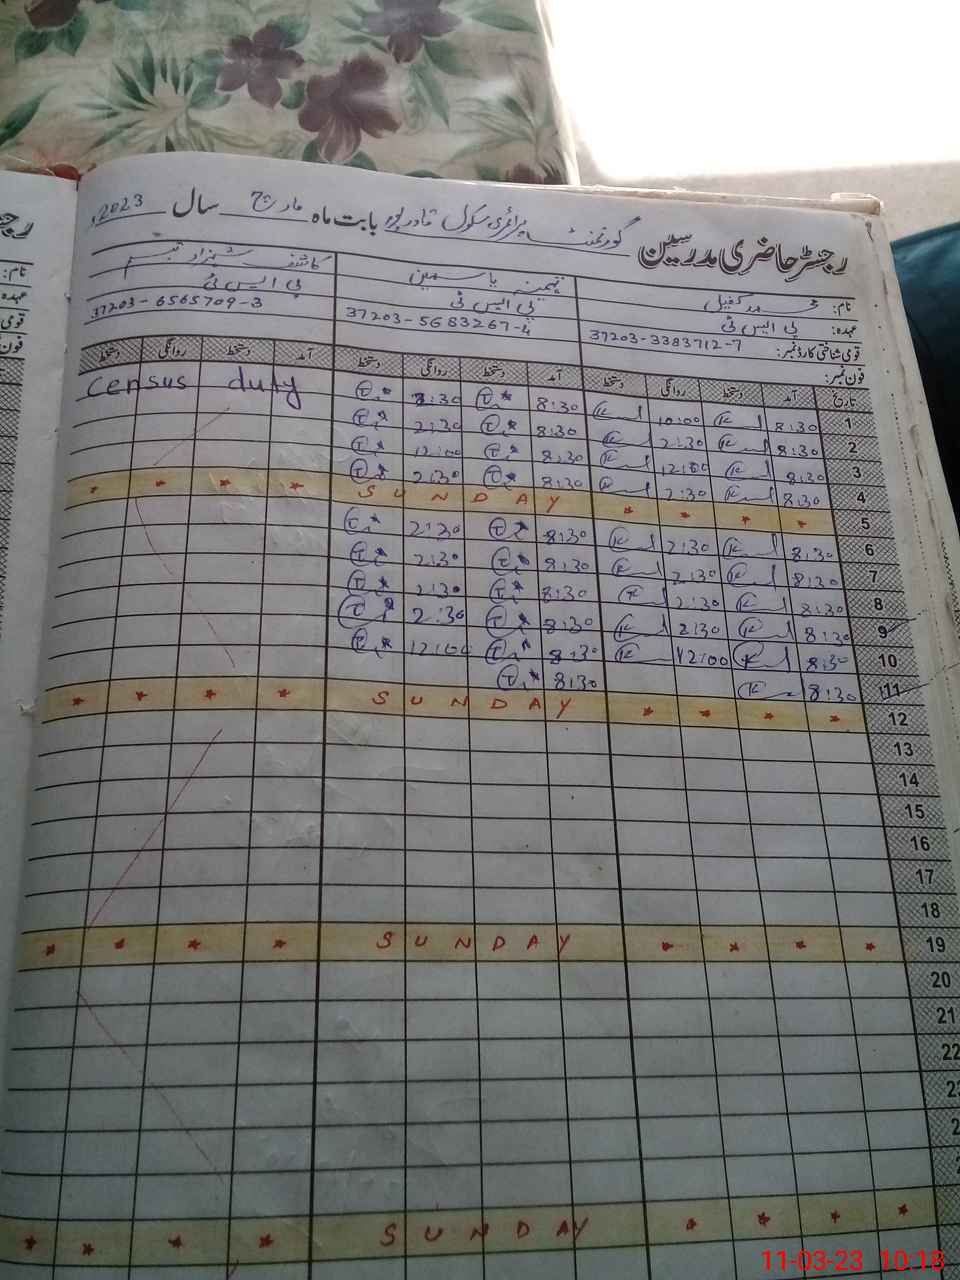 رجسٹر حاضری مدرسین گورنمنٹ پرائمری سکول قادرپور بابت ماہ مارچ سال 2023ء
نام: محمد کفیل تہمینہ یاسمین کاشف شہزاد
عہدہ: پی ایس ٹی پی ایس ٹی پی ایس ٹی
قومی شناختی کارڈ نمبر: 37203-3383712-7 37203-5683267-4 37203-6565709-3
فون نمبر:
تاریخ آمد دستخط روانگی دستخط آمد دستخط روانگی دستخط آمد دستخط روانگی دستخط
1 8:30 10:00 8:30 2:30 Census duty
2 8:30 2:30 8:30 2:30
3 8:30 12:00 8:30 12:00
4 8:30 2:30 8:30 2:30
5 SUNDAY
6 8:30 2:30 8:30 2:30
7 8:30 2:30 8:30 2:30
8 8:30 2:30 8:30 2:30
9 8:30 2:30 8:30 2:30
10 8:30 12:00 8:30 12:00
11 8:30 8:30
12 SUNDAY
13
14
15
16
17
18
19 SUNDAY
20
21
22
SUNDAY
رجـ
نام:
عہدہ
قومی
فون
11-03-23 10:18